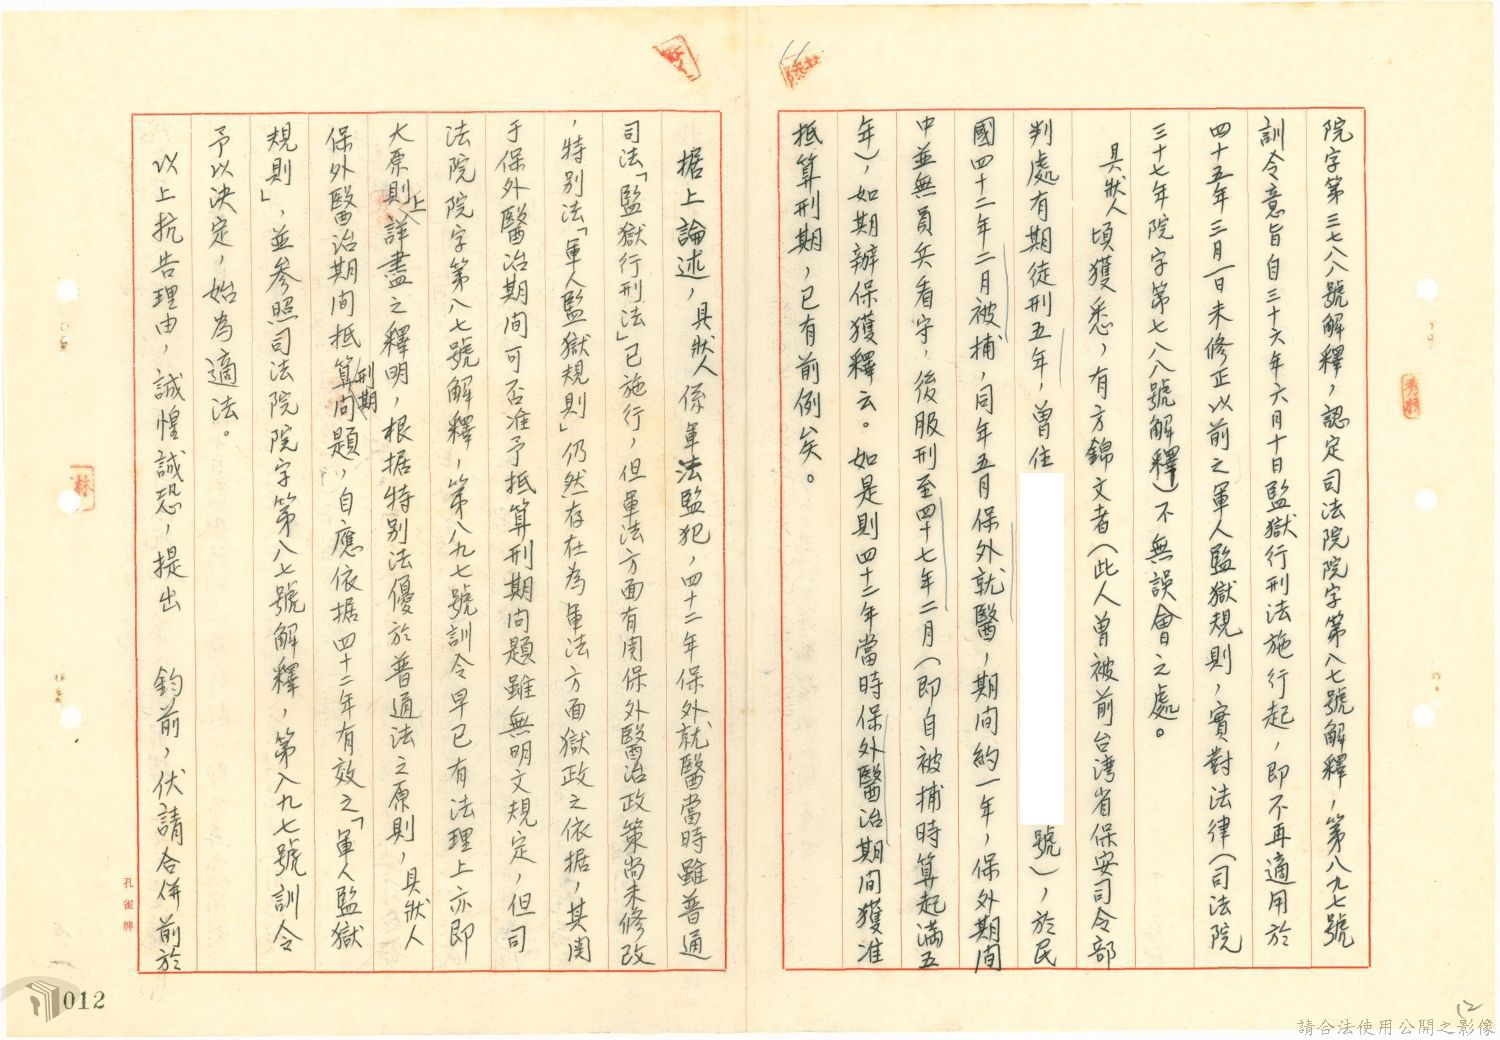 院字第三七八八號解釋，認定司法院院字第八七號解釋，第八九七號
訓令意旨自三十六年六月十日監獄行刑法施行起，即不再適用於
四十五年三月一日未修正以前之軍人監獄規則，實對法律（司法院
三十七年院字第七八八號解釋）不無誤會之處。
具狀人頃獲悉，有方錦文者（此人曾被前台灣省保安司令部
判處有期徒刑五年，曾住
號），於民
國四十二年二月被捕，同年五月保外就醫，期间約一年，保外期间
中並無員兵看守，後服刑至四十七年二月（即自被捕時算起滿五
年），如期辦保獲釋云。如是則四十二年當時保外醫治期间獲准
抵算刑期，已有前例矣。
据上論述，具狀人係軍法監犯，四十二年保外就醫當時雖普通
司法「監獄行刑法」已施行，但軍法方面有関保外醫治政策尚未修改
，特别法「軍人監獄規則」仍然存在為軍法方面獄政之依据，其関
于保外醫治期间可否准予抵算刑期问題雖無明文規定，但司
法院院字第八七號解釋，第八九七號訓令早已有法理上亦即
大原則上詳盡之釋明，根据特别法優於普通法之原則，具狀人
保外醫治期间抵算刑期问題，自應依据四十二年有效之「軍人監獄
規則」，並参照司法院院字第八七號解釋，第八九七號訓令
予以決定，始為適法。
以上抗告理由，誠惶誠恐，提出　鈞前，伏請合併前於
孔雀牌
林
012
12
請合法使用公開之影像